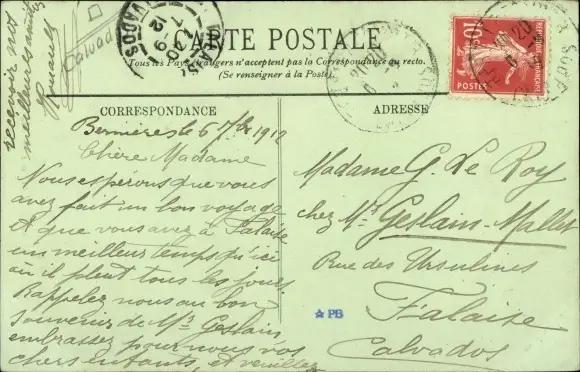 CARTE POSTALE
Tous les Pays étrangers n'acceptent pas la Correspondance au recto.
(Se renseigner à la Poste)
CORRESPONDANCE
ADRESSE
Bernières le 6 7bre 1912
Chère Madame
Nous espérons que vous
avez fait un bon voyage
et que vous avez à Falaise
un meilleur temps qu'ici
où il pleut tous les jours.
Rappelez nous au bon
souvenir de Mrs Geslain
embrassez pour nous vos
chers enfants, et veuillez
recevoir nos
meilleurs
Renault
Calvados
Madame G. Le Roy
chez Mrs Geslain-Mallet
Rue des Ursulines
Falaise
Calvados
10
REPUBLIQUE FRANÇAISE
POSTES
CALVADOS
7-9
12
PB